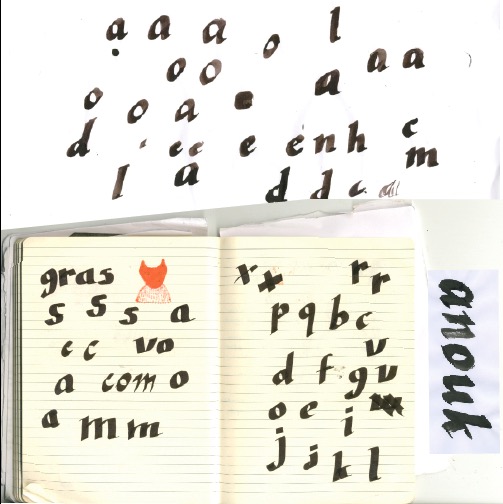 a a a o l
o o a a a
o o a a
d e c e é n h c
l a d d c a m
gras
s s s a
c c vo
a com o
a m m
x x r r
p q b c
v
d f g v
o e i
j j k l
anouk